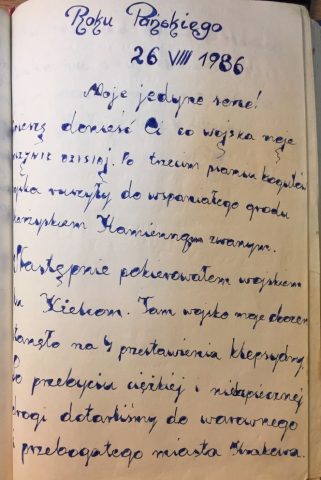 Roku Pańskiego
26 VIII 1986
Moje jedyne serce!
donieść Ci co wojska moje
dzisiaj. Po trzecim pianiu kogutów
ruszyły do wspaniałego grodu
Kamienną zwanym.
Następnie pokierowałem wojskiem
Kielcom. Tam wojsko moje obozem
stanęło na 4 przestawienia klepsydry.
Po przebyciu ciężkiej i niebezpiecznej
drogi dotarliśmy do warownego
i przebogatego miasta Krakowa.